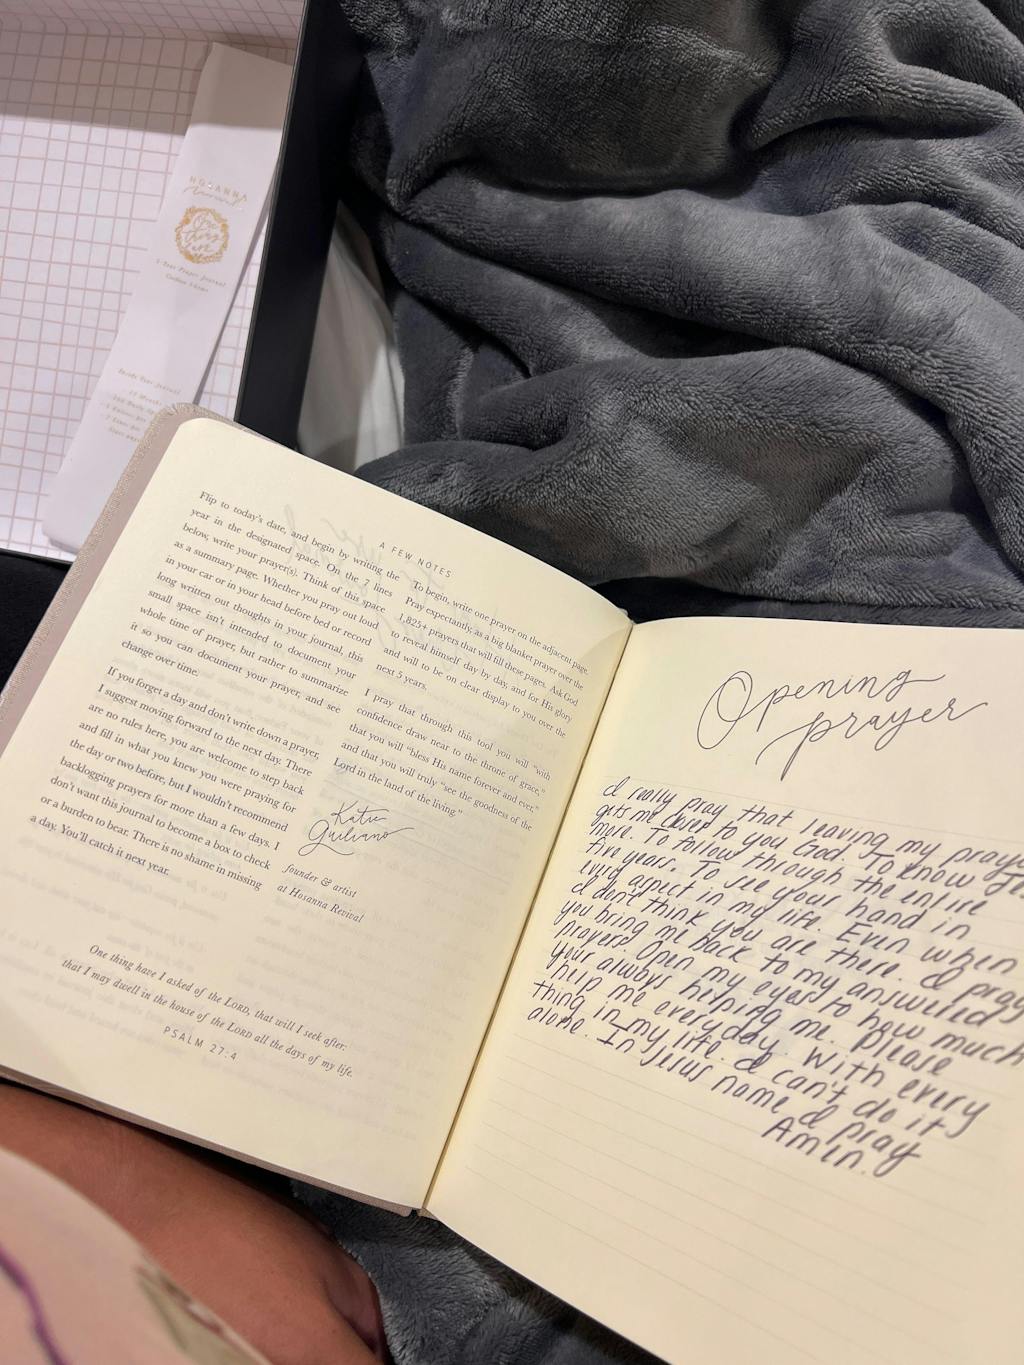 HOSANNA
Revival
One
thing
5 Year Prayer Journal
Inside Your Journal
12 Months
Flip to today's date, and begin by writing the
year in the designated space. On the 7 lines
below, write your prayer(s). Think of this space
as a summary page. Whether you pray out loud
in your car or in your head before bed or record
long written out thoughts in your journal, this
small space isn't intended to document your
whole time of prayer, but rather to summarize
it so you can document your prayer, and see
change over time.
If you forget a day and don't write down a prayer,
I suggest moving forward to the next day. There
are no rules here, you are welcome to step back
and fill in what you knew you were praying for
the day or two before, but I wouldn't recommend
backlogging prayers for more than a few days. I
don't want this journal to become a box to check
or a burden to bear. There is no shame in missing
a day. You'll catch it next year.
A FEW NOTES
To begin, write one prayer on the adjacent page.
Pray expectantly, as a big blanket prayer over the
1,825+ prayers that will fill these pages. Ask God
to reveal himself day by day, and for His glory
and will to be on clear display to you over the
next 5 years.
I pray that through this tool you will "with
confidence draw near to the throne of grace,"
that you will "bless His name forever and ever,"
and that you will truly "see the goodness of the
Lord in the land of the living."
Katie
Guiliano
founder & artist
at Hosanna Revival
One thing have I asked of the LORD, that will I seek after:
that I may dwell in the house of the LORD all the days of my life.
PSALM 27:4
Opening
prayer
I really pray that leaving my praye
gets me closer to you God. To know Je
more. To follow through the entire
five years. To see your hand in
every aspect in my life. Even when
I don't think you are there. I pray
you bring me back to my answered
prayers. Open my eyes to how much
your always helping me. Please
help me everyday. With every
thing in my life. I can't do it
alone. In Jesus name I pray
Amen.